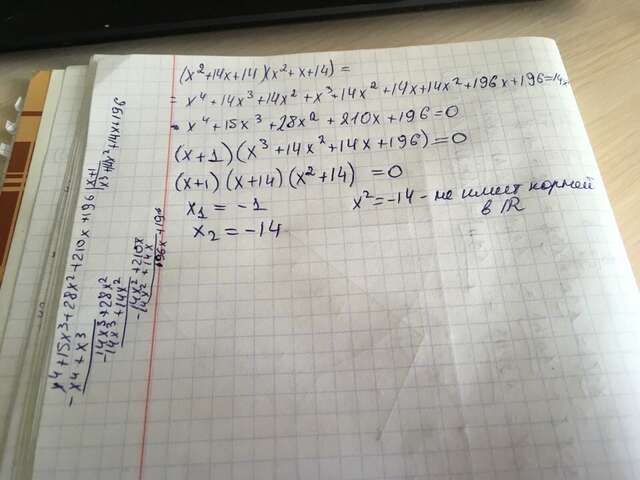 (x²+14x+14)(x²+x+14)=
= x⁴+14x³+14x²+x³+14x²+14x+14x²+196x+196=14x²
= x⁴+15x³+28x²+210x+196=0
(x+1)(x³+14x²+14x+196)=0
(x+1)(x+14)(x²+14) =0
x₁ = -1 x²=-14 - не имеет корней
x₂ = -14 в ℝ
x⁴+15x³+28x²+210x+196 |x+1
- x⁴+x³ x³+14x²+14x+196
14x³+28x²
-14x³+14x²
14x²+210x
-14x²+14x
196x+196